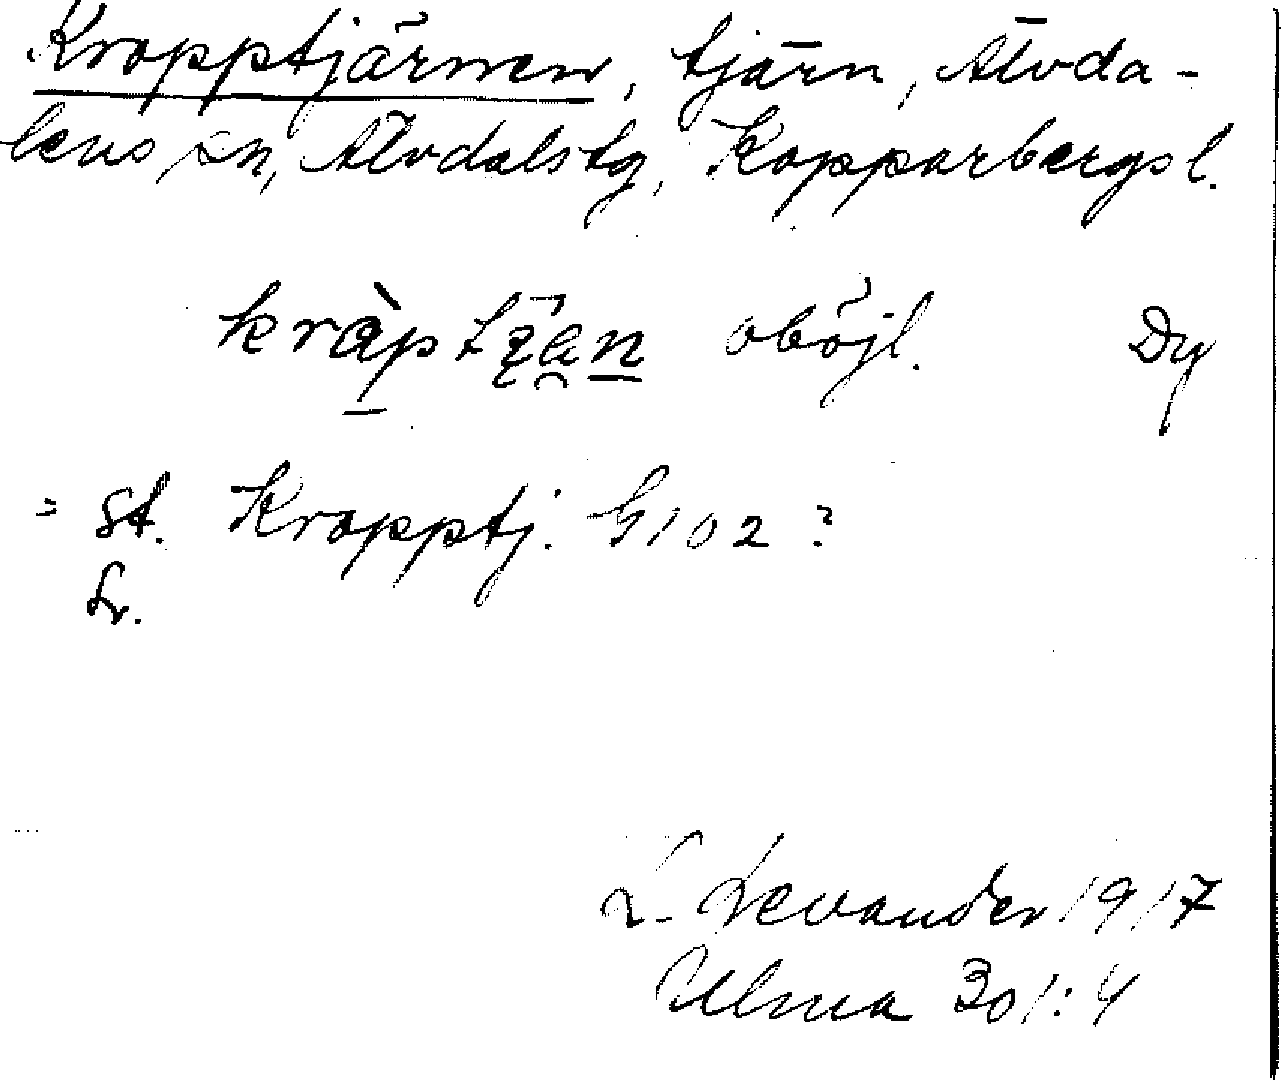 Kropptjärnen, tjärn, Älvda-
lens sn, Älvdals tg, Kopparbergs l.
oböjl. Dy
= St. Kropptj. G 102?
L. Levander 1917
Ulma 301:4